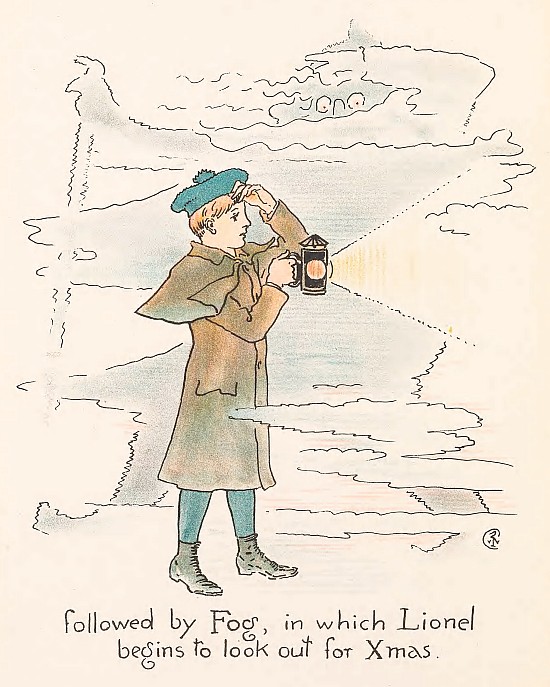 followed by Fog, in which Lionel
begins to look out for Xmas.